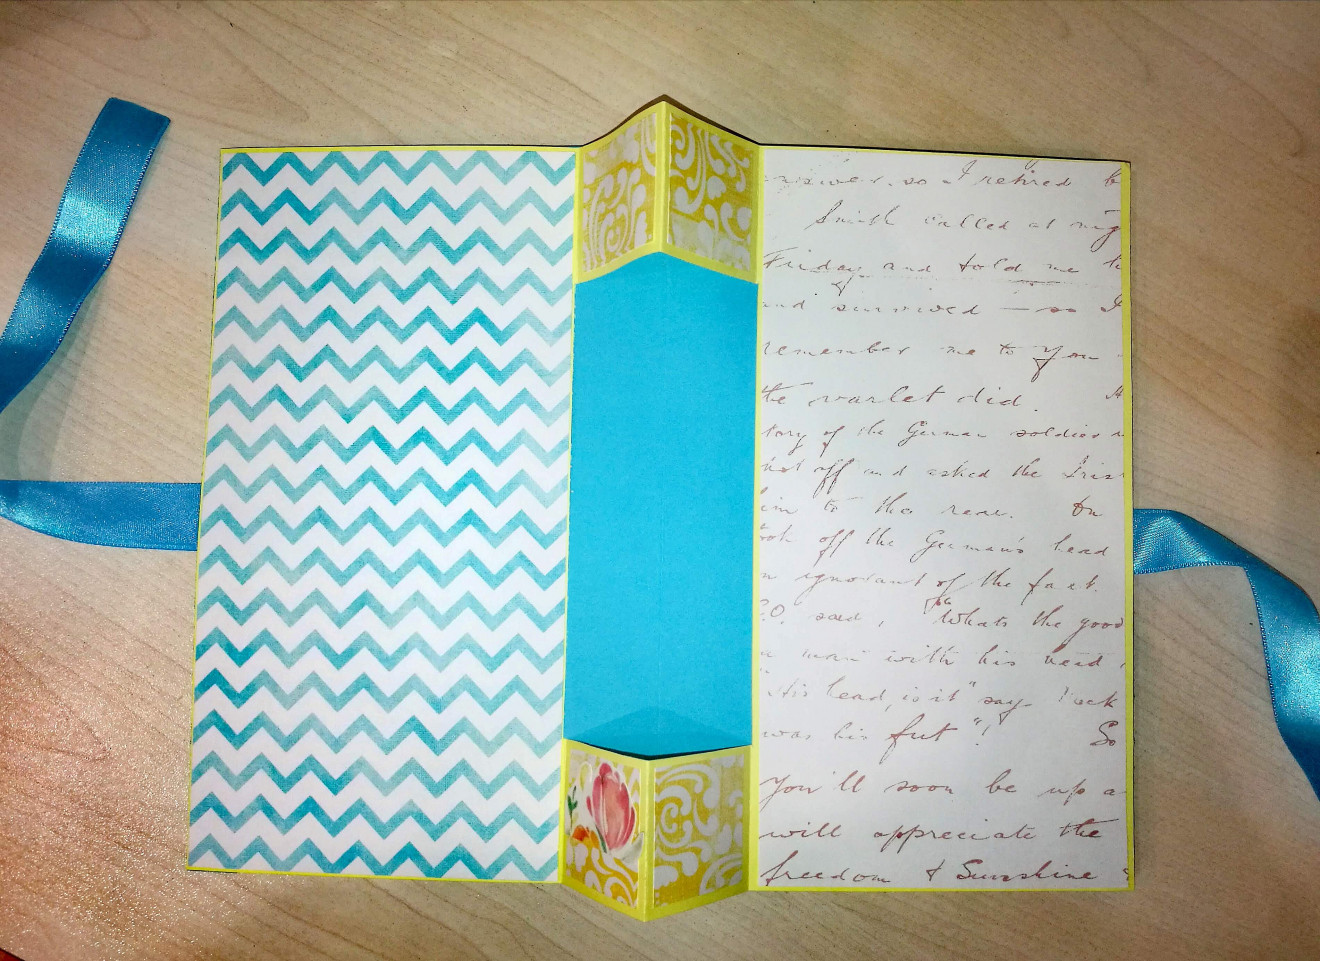 answer, so I retired b
Smith called at nig
Friday and told me t
and survived — so I
remember me to you
the varlet did. A
tory of the German soldier
hot off and asked the Iris
him to the rear. On
ook off the German's head
n ignorant of the fact.
C.O. said, "Whats the good
a man with his head,
"His head, is it" say
was his fut"! So
You'll soon be up a
will appreciate the
freedom & Sunshine